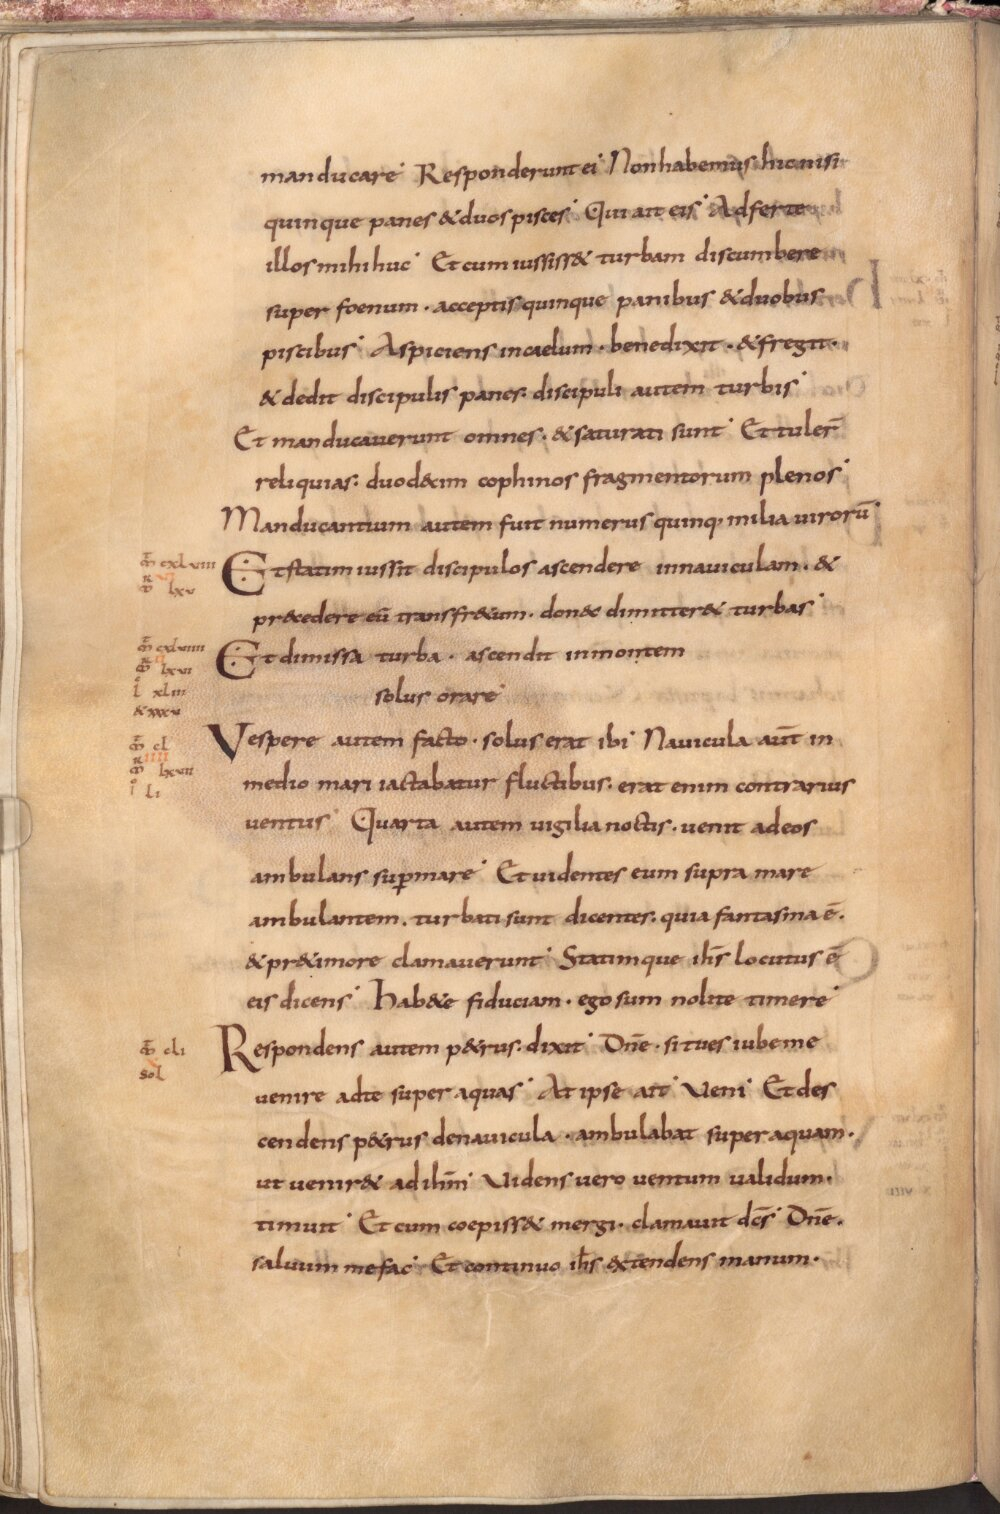 manducare Responderunt ei Non habemus hic nisi
quinque panes & duos pisces Qui ait eis Adferte
illos mihi huc Et cum iussiss& turbam discumbere
super foenum · acceptis quinque panibus & duobus
piscibus Aspiciens in caelum · benedixit · & fregit ·
& dedit discipulis panes · discipuli autem turbis
Et manducaverunt omnes · & saturati sunt Et tuler̄
reliquias · duod&im cophinos fragmentorum plenos
Manducantium autem fuit numerus quinq· milia virorū
Et statim iussit discipulos ascendere in naviculam · &
precedere eū transfr&um · donec dimitter& turbas
Et dimissa turba · ascendit in montem
solus orare
Vespere autem facto · solus erat ibi Navicula aūt in
medio mari iactabatur fluctibus · erat enim contrarius
ventus Quarta autem vigilia noctis · venit ad eos
ambulans sup mare Et videntes eum supra mare
ambulantem · turbati sunt dicentes · quia fantasma ē ·
& pr&imore clamaverunt Statimque ih̄s locutus ē
eis dicens Hab&e fiduciam · ego sum nolite timere
Respondens autem p&rus · dixit Dn̄e · si tu es iube me
venire ad te super aquas At ipse ait Veni Et des
cendens p&rus de navicula · ambulabat super aquam ·
ut venir& ad ih̄m Videns vero ventum validum ·
timuit Et cum coepiss& mergi · clamavit dc̄s Dn̄e ·
salvum me fac Et continuo ih̄s &tendens manum ·
cxlviii
lxv
cxlviiii
lxvi
l xliii
& xxxv
cl
lxvii
li
cli
sol